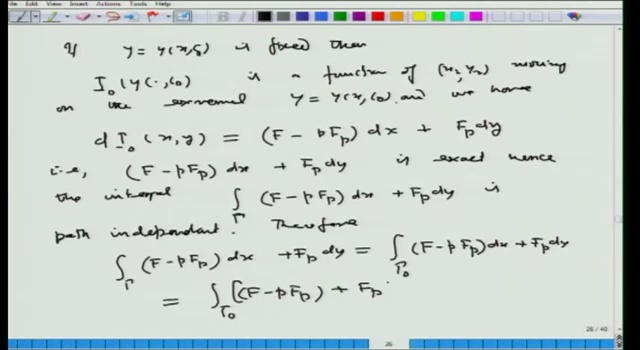 View Insert Actions Tools Help
If y = y(x,ζ) is fixed then
I₀(y(·,ζ₀) is a function of (x₂,y₂) moving
on the extremal y = y(x,ζ₀) and we have
dI₀(x,y) = (F - pFₚ)dx + Fₚdy
i.e., (F - pFₚ)dx + Fₚdy is exact hence
the integral ∫_Γ (F - pFₚ)dx + Fₚdy is
path independant. Therefore
∫_Γ (F - pFₚ)dx + Fₚdy = ∫_Γ₀ (F - pFₚ)dx + Fₚdy
= ∫_Γ₀ [(F - pFₚ) + Fₚ·
26
26 / 40